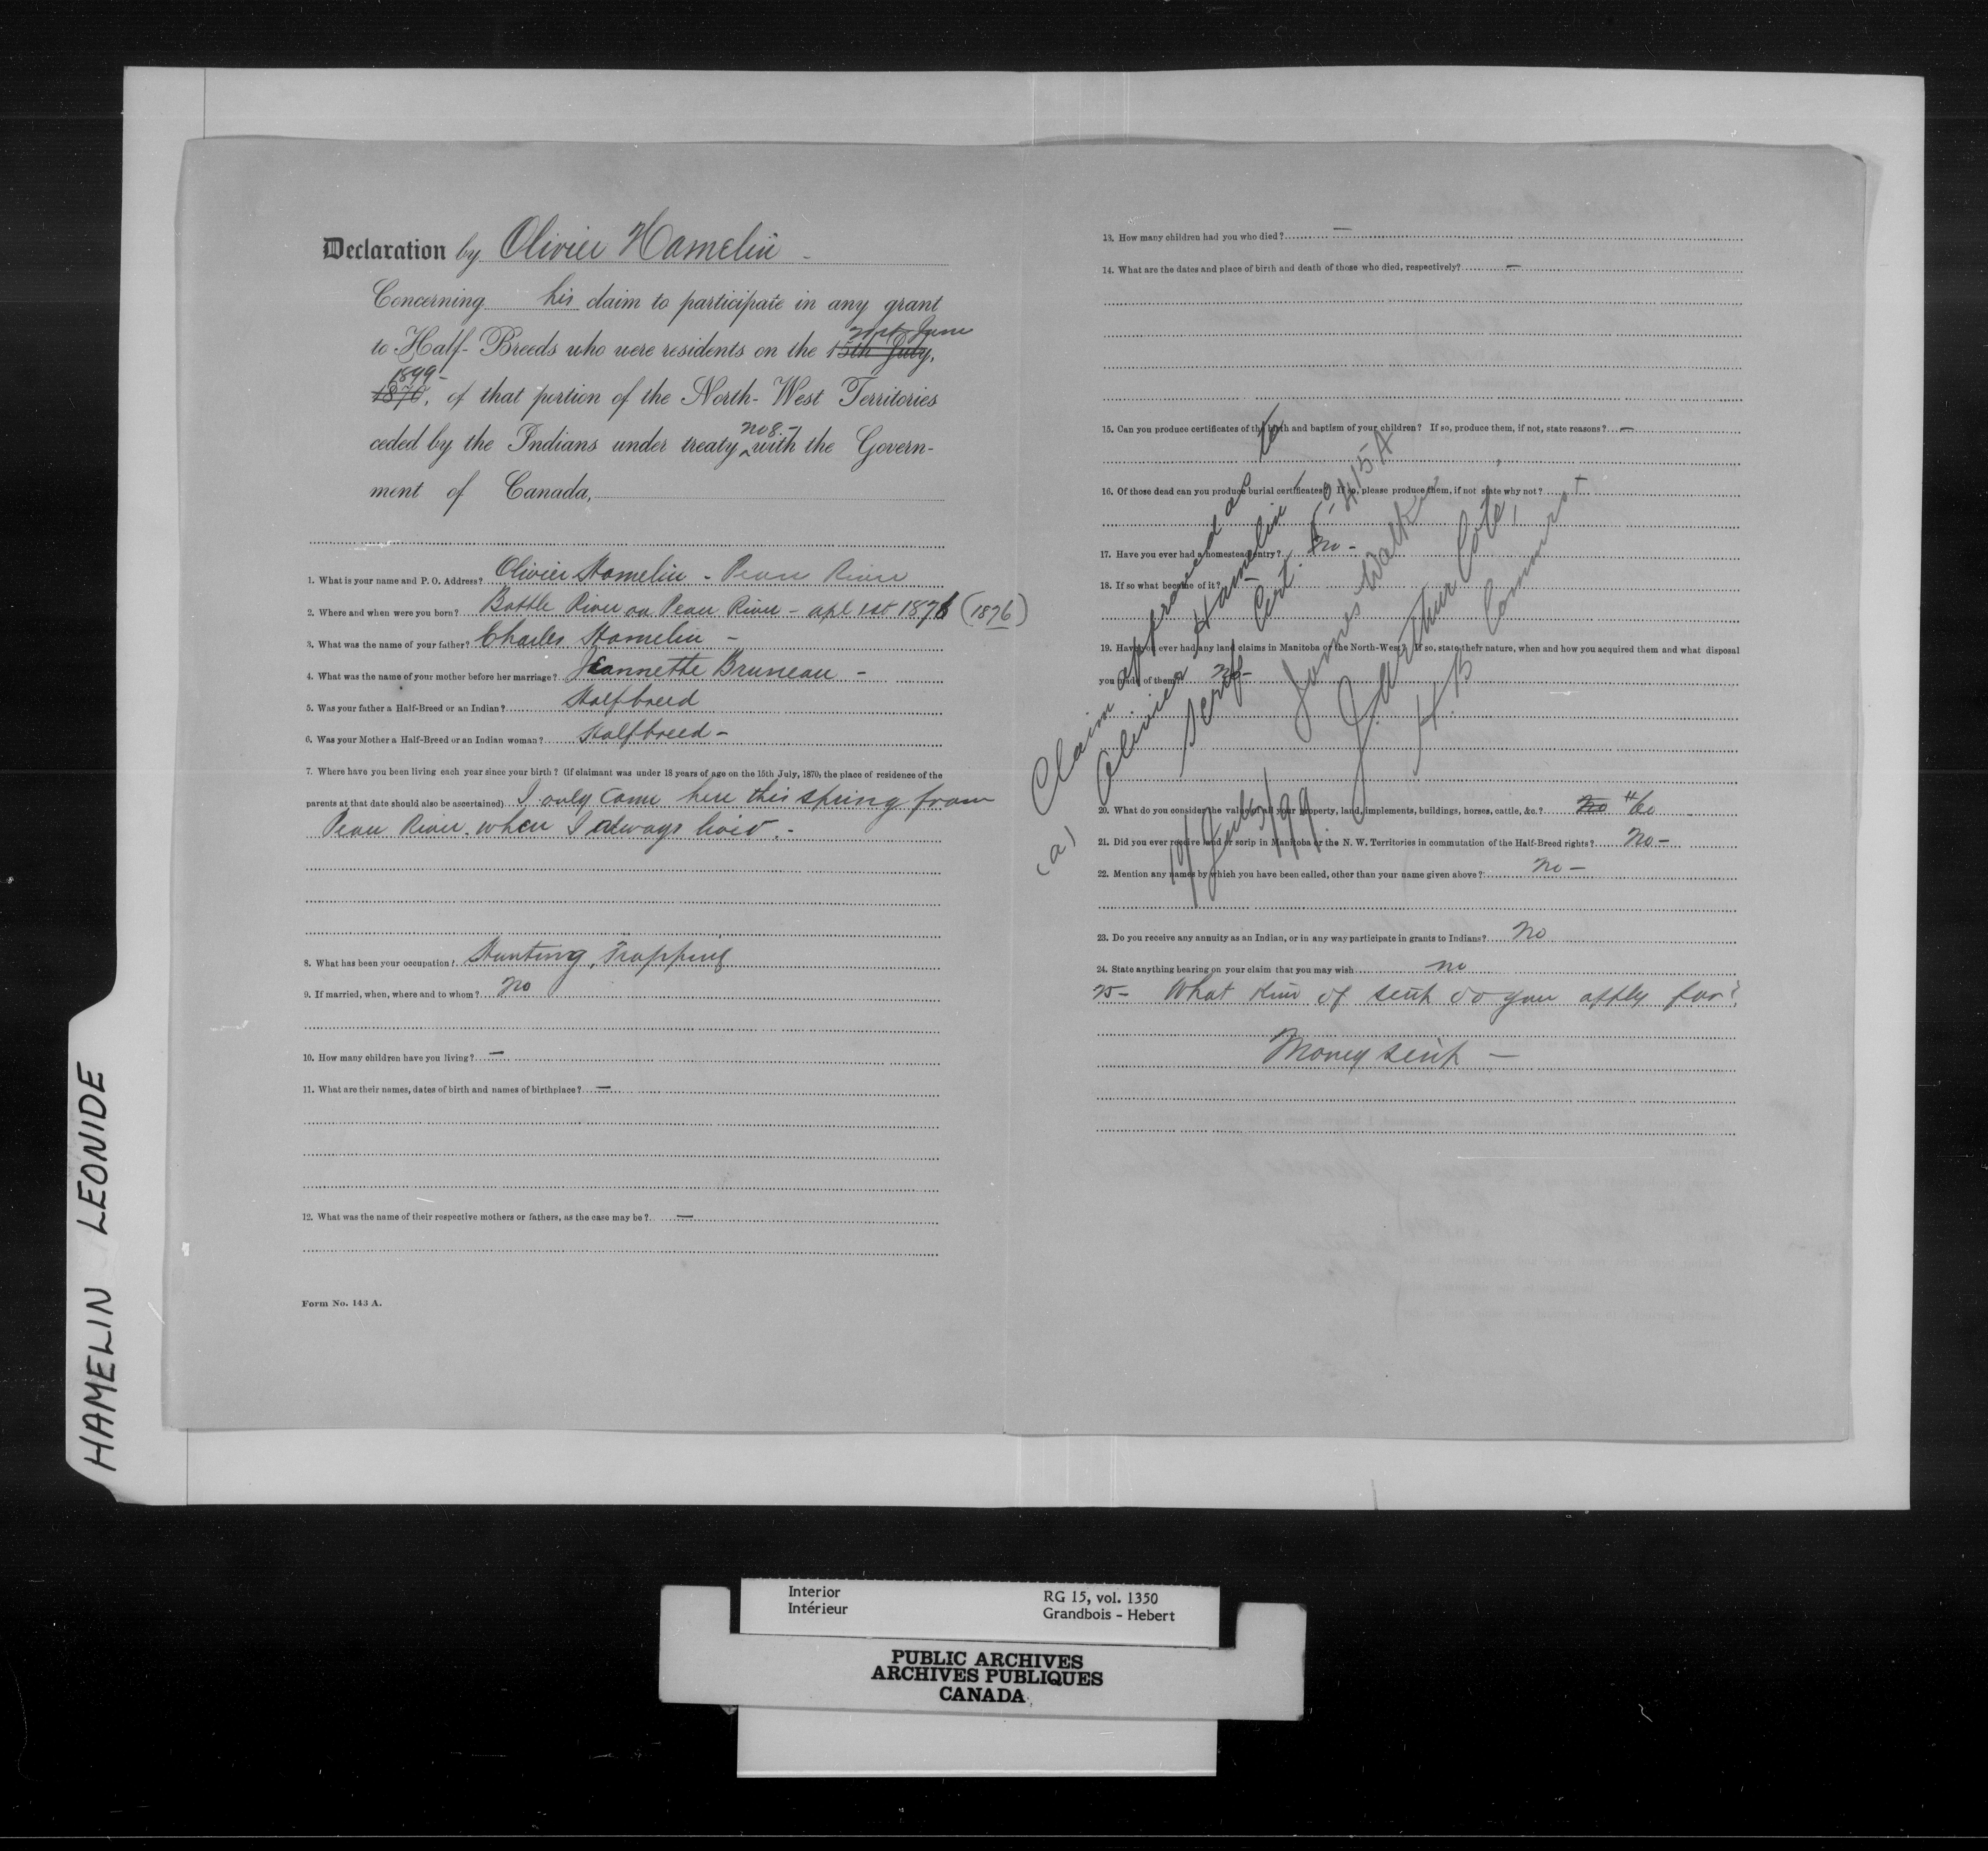 Declaration by Olivier Hamelin -
Concerning his claim to participate in any grant
21st June
to Half-Breeds who were residents on the 15th July,
1899-
1870, of that portion of the North-West Territories
no 8.-
ceded by the Indians under treaty ^ with the Govern-
ment of Canada,
1. What is your name and P. O. Address? Olivier Hamelin - Peace River
2. Where and when were you born? Battle River on Peace River - apl 1st 1876 (1876)
3. What was the name of your father? Charles Hamelin -
4. What was the name of your mother before her marriage? Jeannette Bruneau -
5. Was your father a Half-Breed or an Indian? Halfbreed
6. Was your Mother a Half-Breed or an Indian woman? Halfbreed -
7. Where have you been living each year since your birth? (if claimant was under 18 years of age on the 15th July, 1870, the place of residence of the
parents at that date should also be ascertained) I only came here this spring from
Peace River. when I always lived. -
8. What has been your occupation? Hunting, Trapping
9. If married, when, where and to whom? no
10. How many children have you living? —
11. What are their names, dates of birth and names of birthplace? —
12. What was the name of their respective mothers or fathers, as the case may be? —
Form No. 143 A.
13. How many children had you who died? —
14. What are the dates and place of birth and death of those who died, respectively? —
15. Can you produce certificates of the birth and baptism of your children? If so, produce them, if not, state reasons? —
16. Of those dead can you produce burial certificates? If so, please produce them, if not state why not?
17. Have you ever had a homestead entry? no -
18. If so what became of it?
19. Have you ever had any land claims in Manitoba or the North-West? If so, state their nature, when and how you acquired them and what disposal
you made of them? no -
20. What do you consider the value of all your property, land, implements, buildings, horses, cattle, &c.? no
21. Did you ever receive land or scrip in Manitoba or the N. W. Territories in commutation of the Half-Breed rights? no -
22. Mention any names by which you have been called, other than your name given above? no -
23. Do you receive any annuity as an Indian, or in any way participate in grants to Indians? no
24. State anything bearing on your claim that you may wish no
25- What kind of scrip do you apply for?
Money scrip —
Claim approved as to
(a) Olivier Hamelin
Scrip Cert.
James Walker
J. Arthur Coté,
H B Commrs
19 July/99.
HAMELIN LEONIDE
Interior
Intérieur
RG 15, vol. 1350
Grandbois - Hebert
PUBLIC ARCHIVES
ARCHIVES PUBLIQUES
CANADA